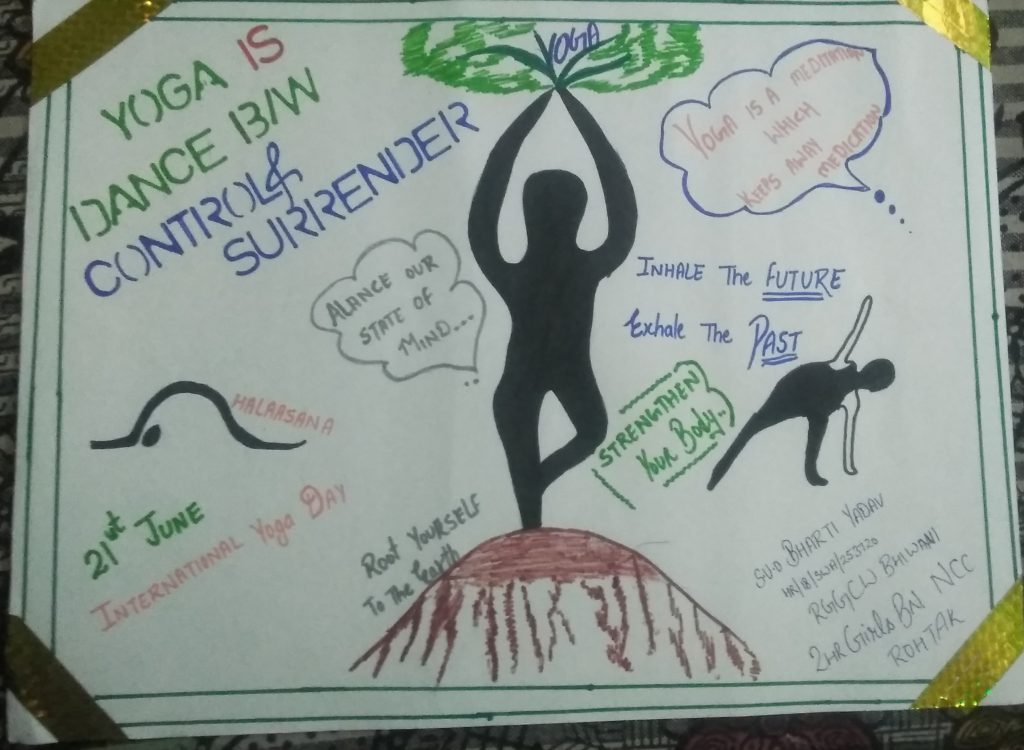 YOGA IS
DANCE B/W
CONTROL &
SURRENDER
YOGA
YOGA IS A MEDITATION
WHICH
KEEPS AWAY
MEDICATION
ALANCE OUR
STATE OF
MIND...
INHALE The FUTURE
Exhale The PAST
STRENGTHEN
YOUR BODY..
HALAASANA
21st JUNE
INTERNATIONAL Yoga DAY
Root YOURSELF
To The Earth
BHARTI YADAV
RGGCW BHIWANI
2HR Girls BN NCC
ROHTAK